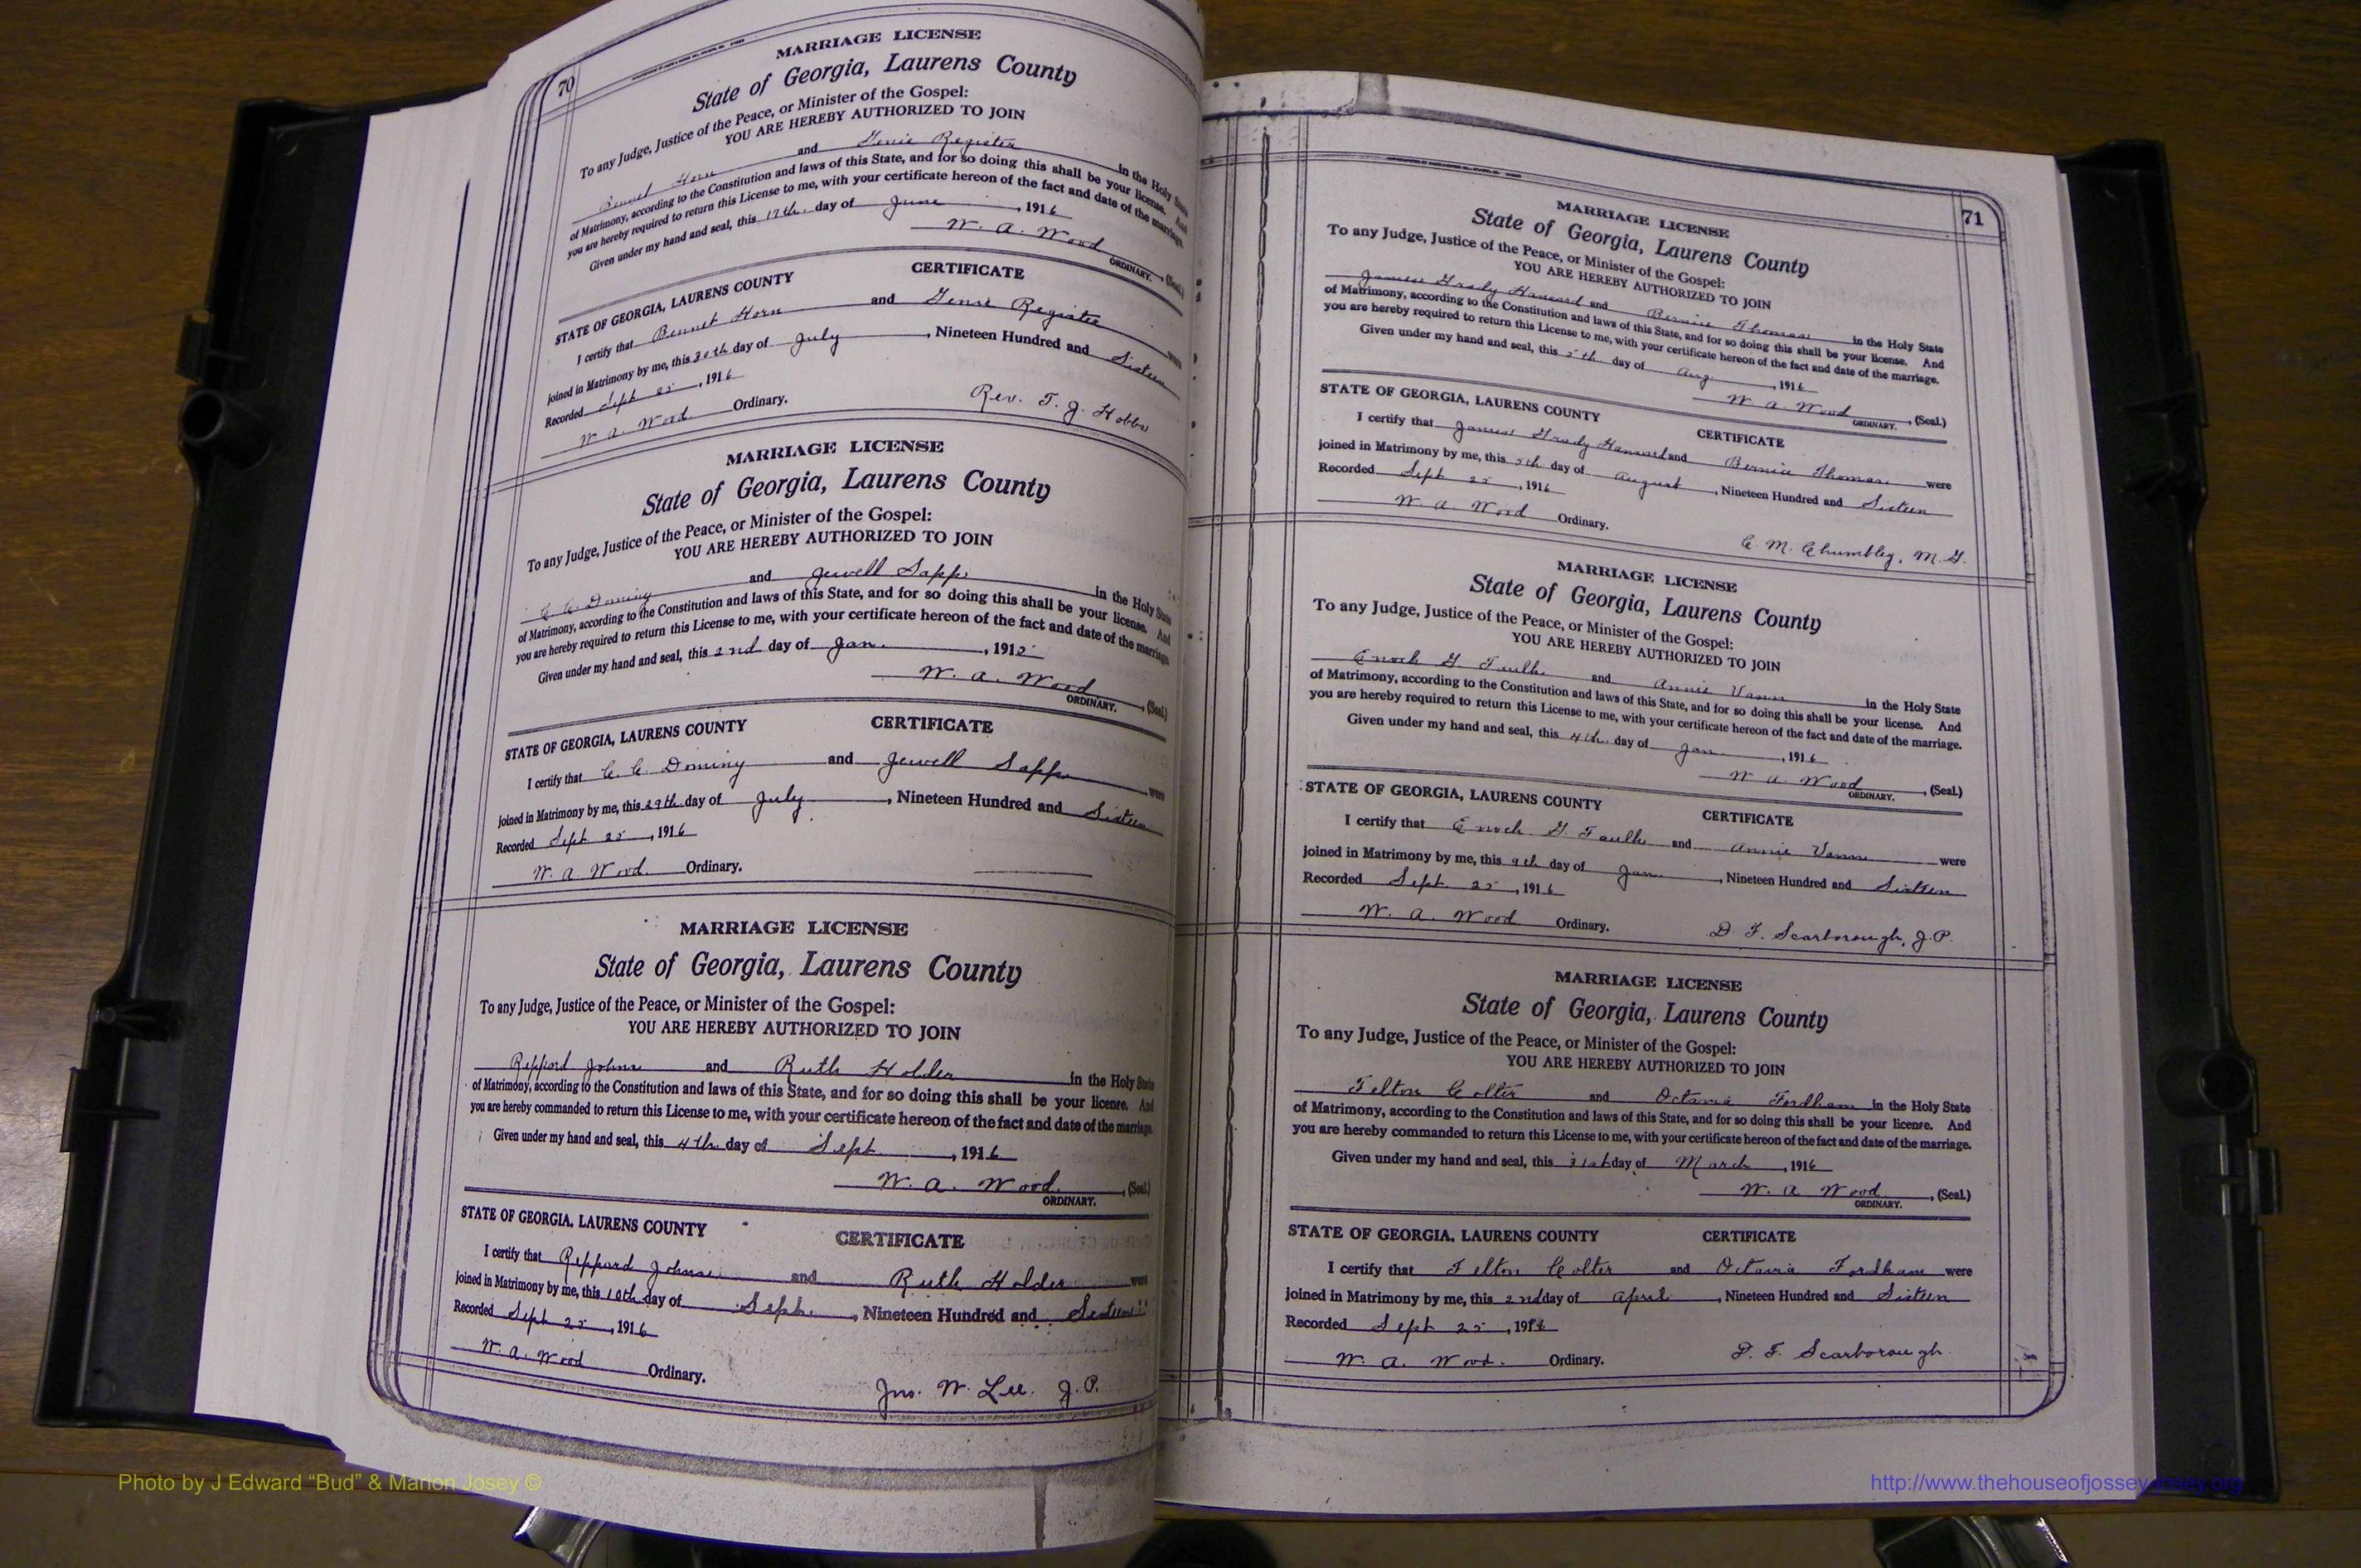 70
MARRIAGE LICENSE
State of Georgia, Laurens County
To any Judge, Justice of the Peace, or Minister of the Gospel:
YOU ARE HEREBY AUTHORIZED TO JOIN
Bennet Horn and Register in the Holy State
of Matrimony, according to the Constitution and laws of this State, and for so doing this shall be your license. And
you are hereby required to return this License to me, with your certificate hereon of the fact and date of the marriage.
Given under my hand and seal, this 17th. day of June, 1916
W. A. Wood, (Seal.)
ORDINARY.
STATE OF GEORGIA, LAURENS COUNTY CERTIFICATE
I certify that Bennet Horn and Register were
joined in Matrimony by me, this 30th day of July, Nineteen Hundred and Sixteen
Recorded Sept 25, 1916
W. A. Wood Ordinary.
Rev. T. J. Hobbs
MARRIAGE LICENSE
State of Georgia, Laurens County
To any Judge, Justice of the Peace, or Minister of the Gospel:
YOU ARE HEREBY AUTHORIZED TO JOIN
C. C. Dominy and Jewell Sapp in the Holy State
of Matrimony, according to the Constitution and laws of this State, and for so doing this shall be your license. And
you are hereby required to return this License to me, with your certificate hereon of the fact and date of the marriage.
Given under my hand and seal, this 2nd day of Jan., 1915
W. A. Wood, (Seal.)
ORDINARY.
STATE OF GEORGIA, LAURENS COUNTY CERTIFICATE
I certify that C. C. Dominy and Jewell Sapp were
joined in Matrimony by me, this 29th day of July, Nineteen Hundred and Sixteen
Recorded Sept 25, 1916
W. A. Wood. Ordinary.
MARRIAGE LICENSE
State of Georgia, Laurens County
To any Judge, Justice of the Peace, or Minister of the Gospel:
YOU ARE HEREBY AUTHORIZED TO JOIN
Reppard Johns and Ruth Holder in the Holy State
of Matrimony, according to the Constitution and laws of this State, and for so doing this shall be your license. And
you are hereby commanded to return this License to me, with your certificate hereon of the fact and date of the marriage.
Given under my hand and seal, this 4th day of Sept, 1916
W. A. Wood., (Seal.)
ORDINARY.
STATE OF GEORGIA, LAURENS COUNTY CERTIFICATE
I certify that Reppard Johns and Ruth Holder were
joined in Matrimony by me, this 10th day of Sept., Nineteen Hundred and Sixteen
Recorded Sept 25, 1916
W. A. Wood Ordinary.
Jno. W. Lee. J.P.
71
MARRIAGE LICENSE
State of Georgia, Laurens County
To any Judge, Justice of the Peace, or Minister of the Gospel:
YOU ARE HEREBY AUTHORIZED TO JOIN
James Grady and Bernice Thomas in the Holy State
of Matrimony, according to the Constitution and laws of this State, and for so doing this shall be your license. And
you are hereby required to return this License to me, with your certificate hereon of the fact and date of the marriage.
Given under my hand and seal, this 5th day of Aug, 1916
W. A. Wood, (Seal.)
ORDINARY.
STATE OF GEORGIA, LAURENS COUNTY CERTIFICATE
I certify that James Grady and Bernice Thomas were
joined in Matrimony by me, this 5th day of August, Nineteen Hundred and Sixteen
Recorded Sept 25, 1916
W. A. Wood Ordinary.
C. M. Chumbley, M.G.
MARRIAGE LICENSE
State of Georgia, Laurens County
To any Judge, Justice of the Peace, or Minister of the Gospel:
YOU ARE HEREBY AUTHORIZED TO JOIN
Enoch G. Faulk and Annie Vann in the Holy State
of Matrimony, according to the Constitution and laws of this State, and for so doing this shall be your license. And
you are hereby required to return this License to me, with your certificate hereon of the fact and date of the marriage.
Given under my hand and seal, this 4th day of Jan, 1916
W. A. Wood, (Seal.)
ORDINARY.
STATE OF GEORGIA, LAURENS COUNTY CERTIFICATE
I certify that Enoch G. Faulk and Annie Vann were
joined in Matrimony by me, this 9th day of Jan., Nineteen Hundred and Sixteen
Recorded Sept. 25, 1916
W. A. Wood Ordinary.
D. F. Scarborough, J.P.
MARRIAGE LICENSE
State of Georgia, Laurens County
To any Judge, Justice of the Peace, or Minister of the Gospel:
YOU ARE HEREBY AUTHORIZED TO JOIN
Felton Colter and Octavia Fordham in the Holy State
of Matrimony, according to the Constitution and laws of this State, and for so doing this shall be your license. And
you are hereby commanded to return this License to me, with your certificate hereon of the fact and date of the marriage.
Given under my hand and seal, this 31st day of March, 1916
W. A. Wood, (Seal.)
ORDINARY.
STATE OF GEORGIA, LAURENS COUNTY CERTIFICATE
I certify that Felton Colter and Octavia Fordham were
joined in Matrimony by me, this 2nd day of April, Nineteen Hundred and Sixteen
Recorded Sept 25, 1916
W. A. Wood. Ordinary.
D. F. Scarborough.
Photo by J Edward “Bud” & Marion Josey ©
http://www.thehouseofjossey-josey.org